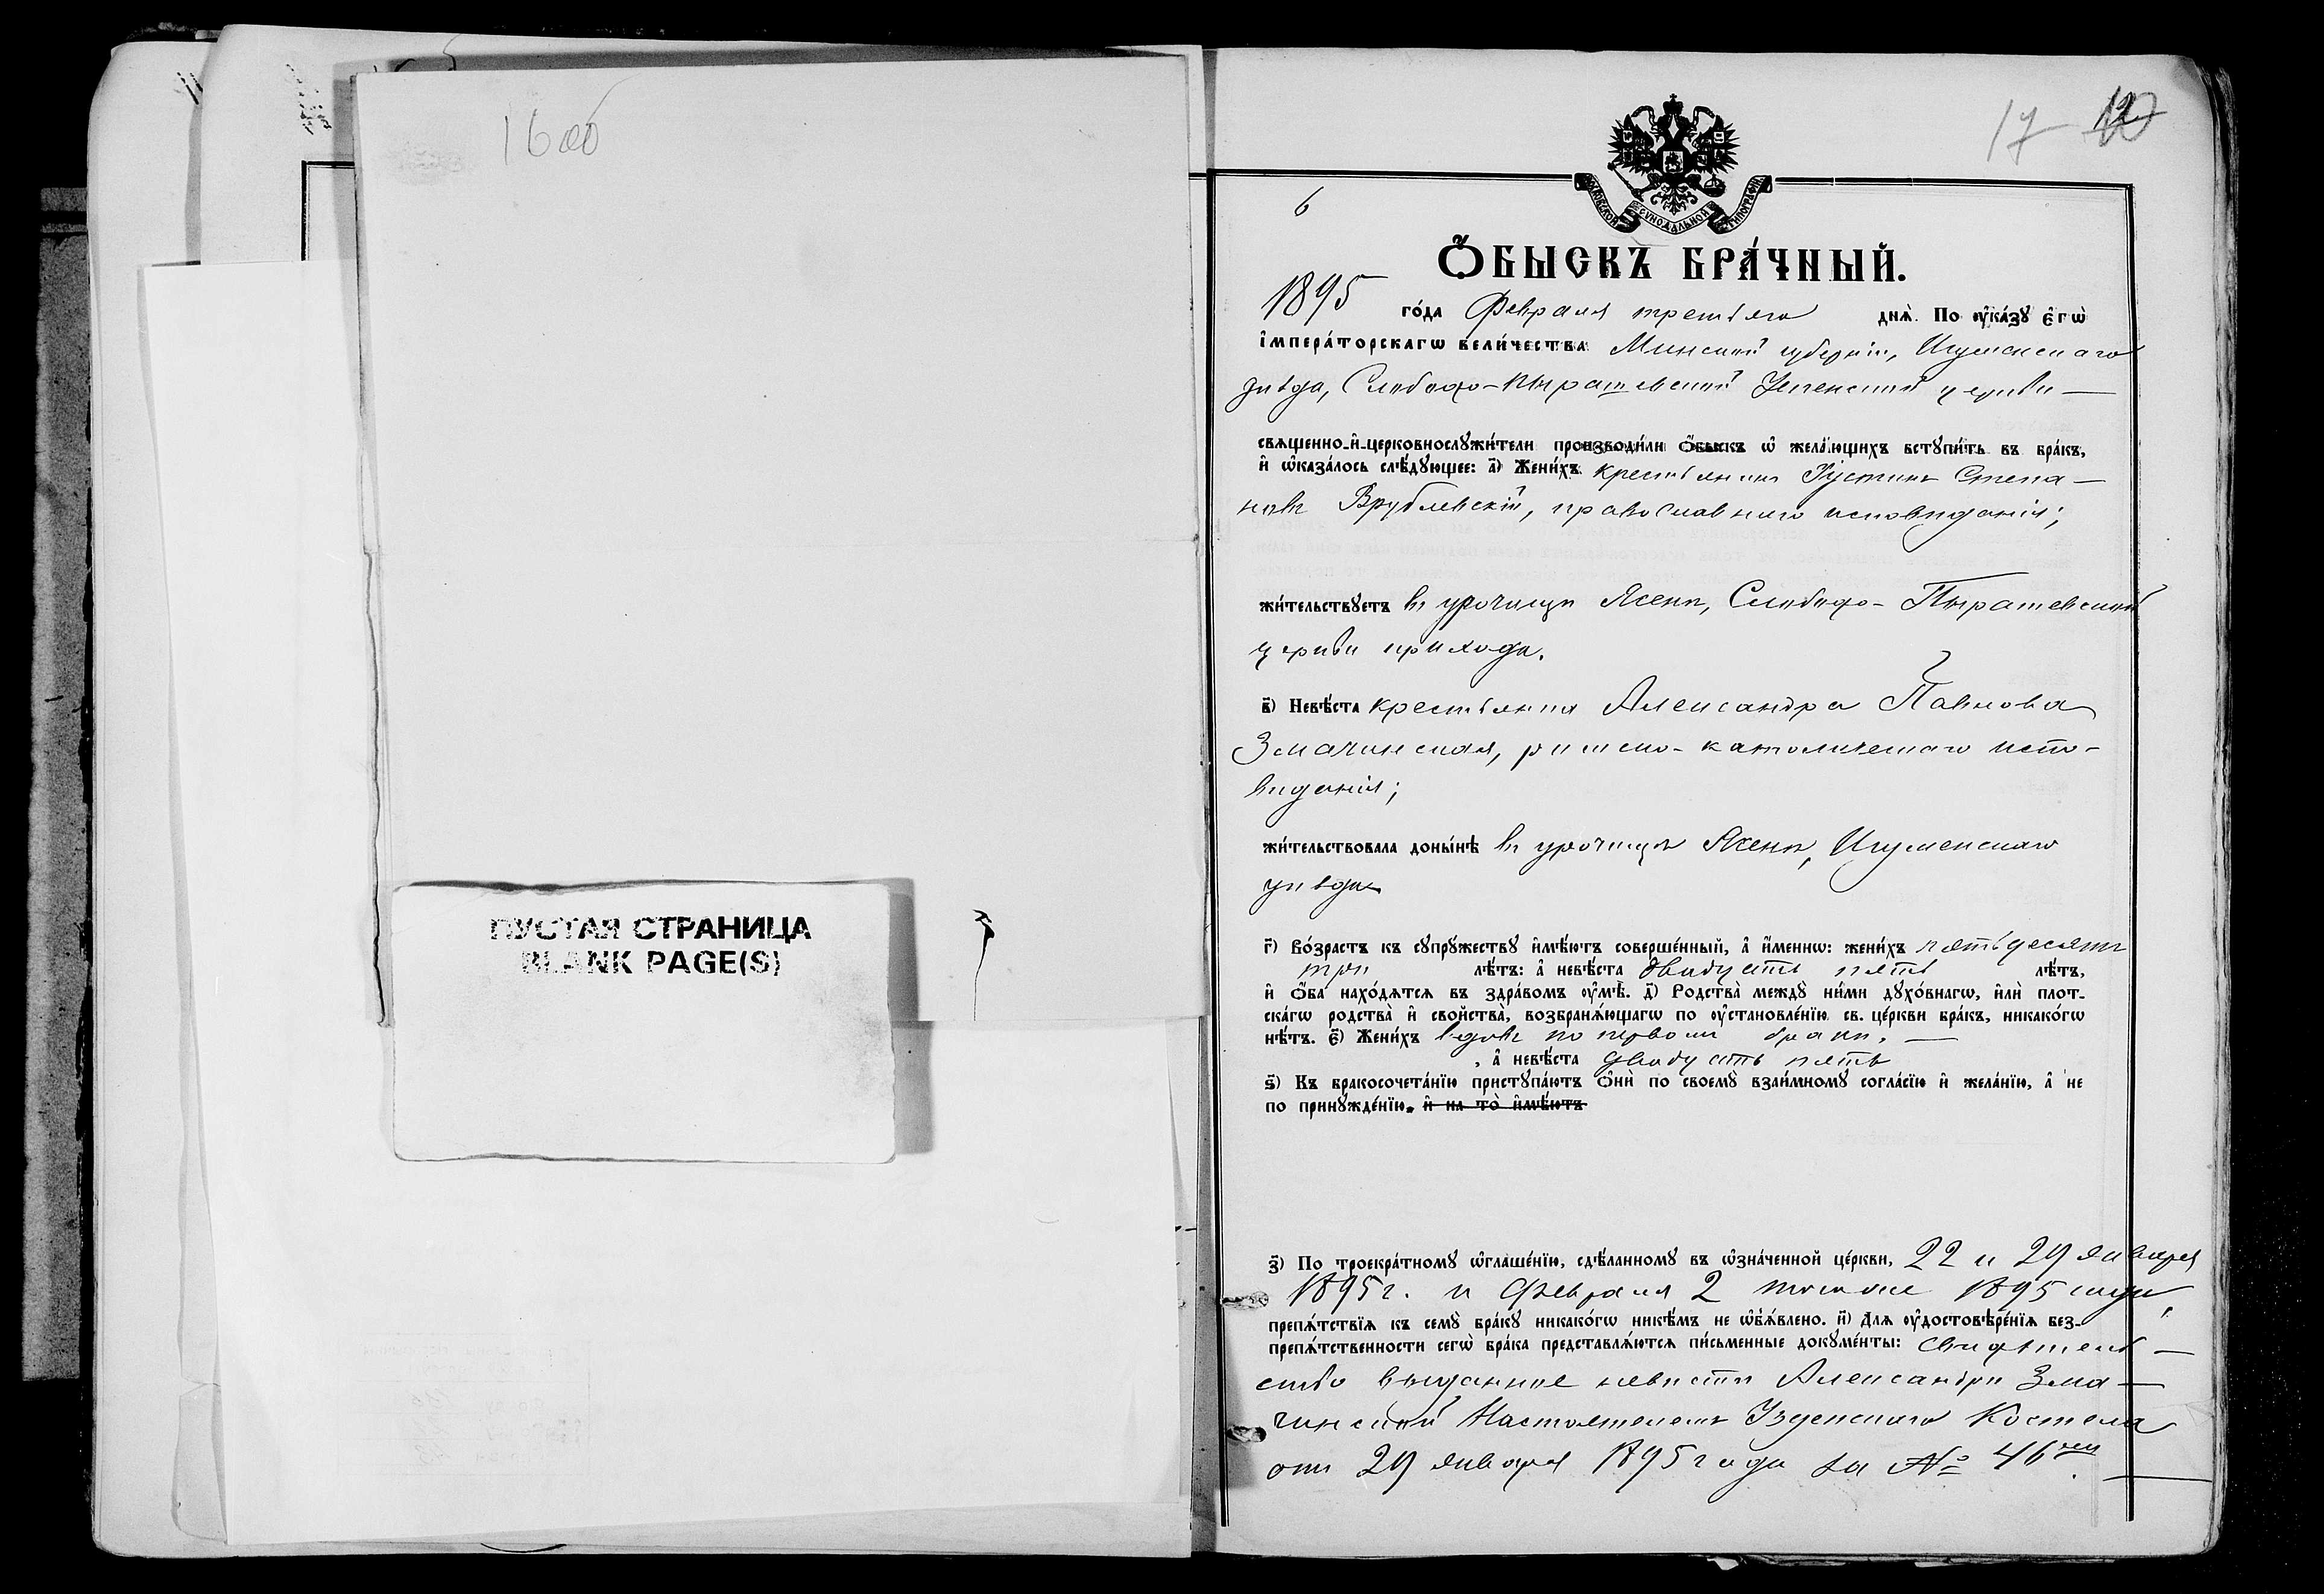 16 об
ПУСТАЯ СТРАНИЦА
BLANK PAGE(S)
17
6
МОСКОВСКОЙ СУНОДАЛЬНОЙ ТИПОГРАФІИ
Ѻ҆БЫСКЪ БРА́ЧНЫЙ.
1895 го́да Февраля третьяго днѧ̀. По ᲂу҆ка́зꙋ є҆гѡ̀
і҆мпера́торскагѡ вели́чества Минской губерніи, Игуменскаго
уѣзда, Слободо-Пырашевской Успенской церкви —
свѧщенно-и҆-церковнослꙋжи́тели производи́ли ѻ҆быскъ ѡ҆ жела́ющихъ встꙋпи́ть въ бра́къ,
и҆ ѡ҆каза́лось слѣ́дꙋющее: а҃) Жени́хъ крестьянинъ Іустинъ Степа-
новъ Врублевскій, православнаго исповѣданія;
жи́тельствꙋетъ въ урочищѣ Ясенѣ, Слободо-Пырашевской
церкви прихода.
в҃) Невѣ́ста крестьянка Александра Павлова
Змачинская, римско-католическаго испо-
вѣданія;
жи́тельствовала доны́нѣ въ урочищѣ Ясенѣ, Игуменскаго
уѣзда
г҃) Во́зрастъ къ сꙋпрꙋ́жествꙋ и҆мѣ́ютъ соверше́нный, а҆ и҆́меннѡ: жени́хъ пятьдесятъ
три лѣ́тъ: а҆ невѣ́ста двадцать пять лѣ́тъ,
и҆ ѻ҆́ба нахо́дѧтсѧ въ здра́вомъ ᲂу҆мѣ̀. д҃) Родства̀ междꙋ̀ ни́ми дꙋхо́внагѡ, и҆лѝ плот-
ска́гѡ родства̀ и҆ сво́йства, возбранѧ́ющагѡ по ᲂу҆становле́нїю св. це́ркви бра́къ, никако́гѡ
нѣ́тъ. є҃) Жени́хъ вдовъ по первомъ бракѣ. —
, а҆ невѣ́ста двадцать пять
ѕ҃) Къ бракосочета́нїю пристꙋпа́ютъ ѻ҆нѝ по своемꙋ̀ взаи́мномꙋ согла́сїю и҆ жела́нїю, а҆ не
по принꙋжде́нїю. и҆ на то̀ и҆мѣ́ютъ
з҃) По троекра́тномꙋ ѡ҆глаше́нїю, сдѣ́ланномꙋ въ ѡ҆зна́ченной це́ркви, 22 и 29 января
1895 г. и февраля 2 того же 1895 года,
препѧ́тствїѧ къ семꙋ̀ бра́кꙋ никако́гѡ никѣ́мъ не ѡ҆б̾ѧ́влено. и҃) Длѧ ᲂу҆достовѣре́нїѧ без-
препѧ́тственности сегѡ̀ бра́ка представлѧ́ютсѧ пи́сьменные докꙋме́нты: свидѣтель-
ство выданное невѣстѣ Александрѣ Зма-
чинской Настоятелемъ Узденскаго Костела
отъ 29 января 1895 года за № 46